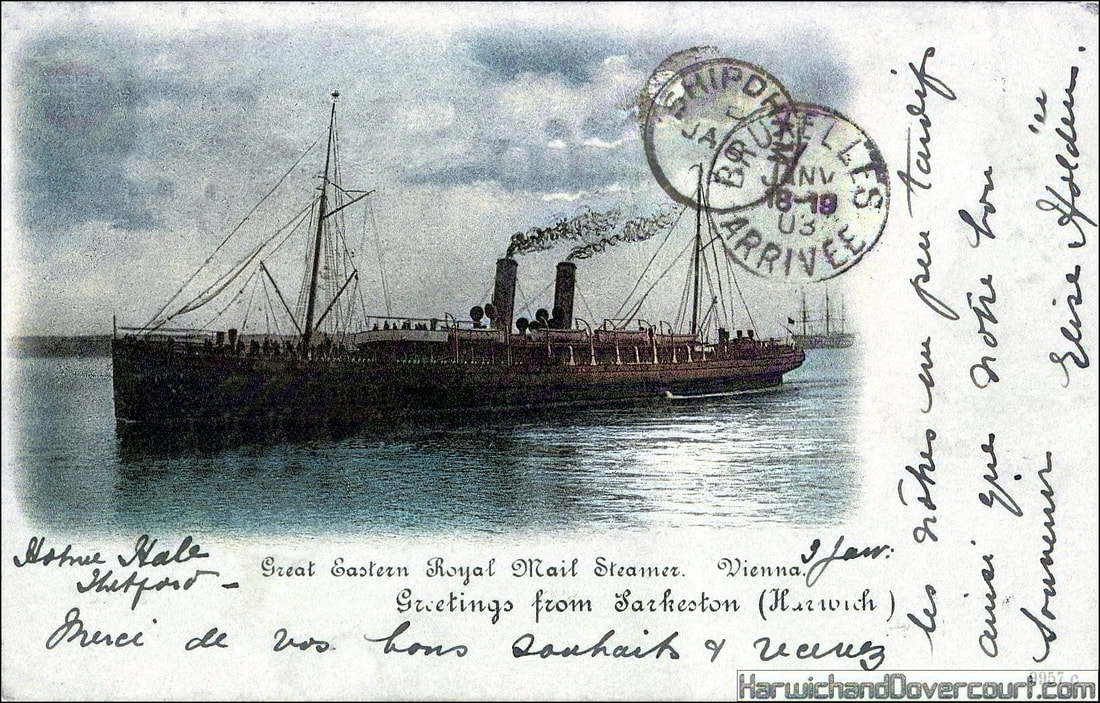 SHIPDH
JA
BRUXELLES
JANV
18-19
03
ARRIVÉE
Holme Hale
Thetford –
3 Janv:
Great Eastern Royal Mail Steamer. Vienna.
Greetings from Parkeston (Harwich)
Merci de vos bons souhaits & recevez
les nôtres un peu tardifs
ainsi que notre bon
souvenir Elise
9957 c
HarwichandDovercourt.com